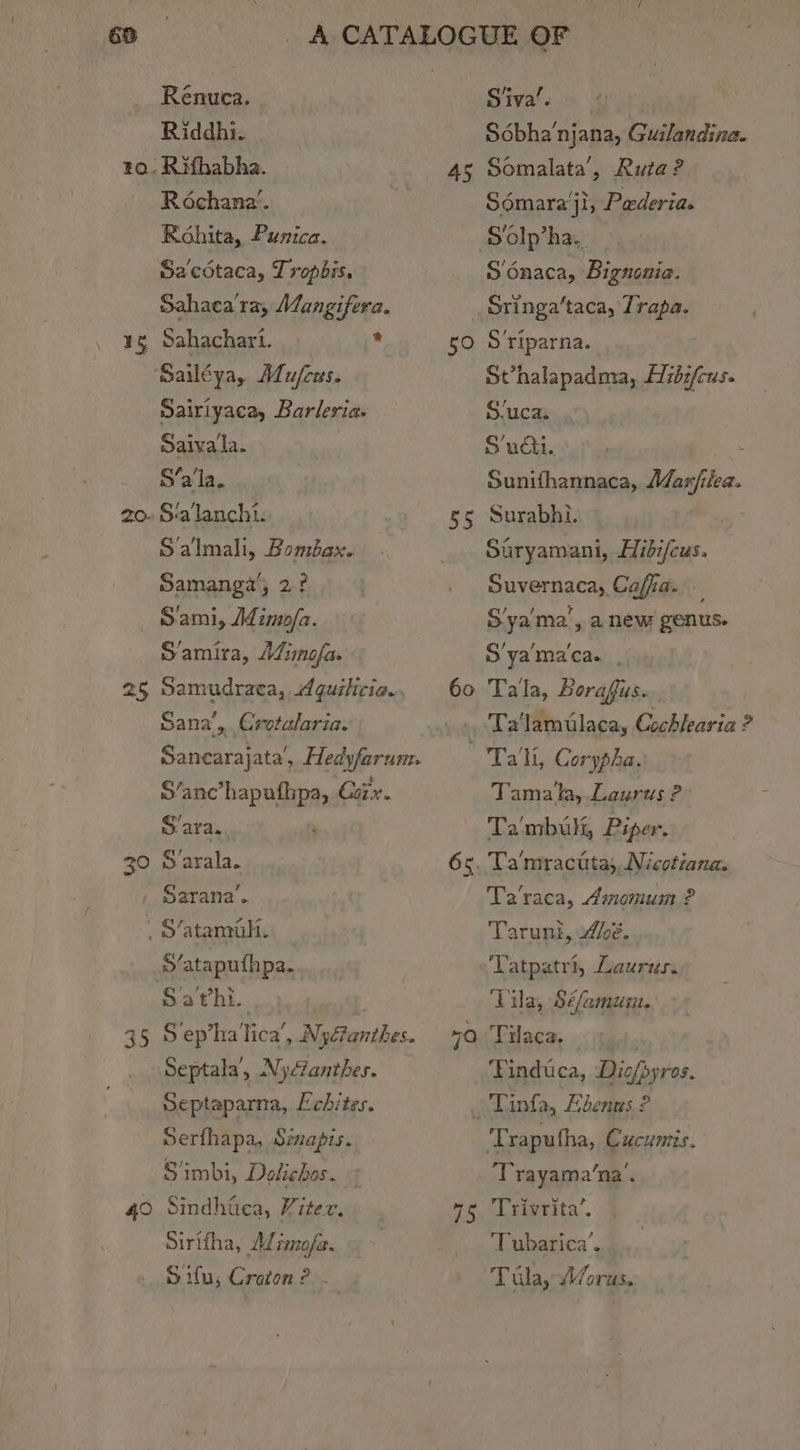 60 A CATALOGUE OF
Rénuca.
Riddhi.
10. Riſhabha.
Róchana'.
Róhita, Punica.
Sa'cótaca, Trophis.
Sahaca'ra, Mangifera.
15 Sahachari.
Sailéya, Muſcus.
Sairíyaca, Barleria.
Saiva'la.
S'a'la.
20. S'a'lanchi.
S'a'lmali, Bombax.
Samanga', 2?
S'ami, Mimoſa.
S'amíra, Mimoſa.
25 Samudraca, Aquilicia.
Sana', Crotalaria.
Sancarajata', Hedyſarum.
S'anc'hapuſhpa, Coix.
S'ara.
30 S'arala.
Sarana'.
S'atamúlì.
S'atapuſhpa.
Sat'hì.
35 S'ep'ha'lica', Nyctanthes.
Septala', Nyctanthes.
Septaparna, Echites.
Serſhapa, Sinapis.
S'imbi, Dolichos.
40 Sindhúca, Vitex.
Siriſha, Mimoſa.
S'iſu, Croton?
S'iva'.
Sóbha'njana, Guilandina.
45 Sómalata', Ruta?
Sómara'jì, Pæderia.
S'olp'ha.
S'ónaca, Bignonia.
Sringa'taca, Trapa.
50 S'riparna.
St'halapadma, Hibiſcus.
S'uca.
S'ucti.
Suniſhannaca, Marſilea.
55 Surabhì.
Súryamani, Hibiſcus.
Suvernaca, Caſſia.
S'ya'ma', a new genus.
S'ya'ma'ca.
60 Ta'la, Boraſſus.
Ta'lamúlaca, Cochlearia?
Ta'lì, Corypha.
Tama'la, Laurus?
Ta'mbúlì, Piper.
65. Ta'mracúta, Nicotiana.
Ta'raca, Amomum?
Tarunì, Aloë.
Tatpatrì, Laurus.
Tila, Séſamum.
70 Tilaca.
Tindúca, Dioſpyros.
Tinſa, Ebenus?
Trapuſha, Cucumis.
Trayama'na'.
75 Trivrita'.
Tubarica'.
Túla, Morus.